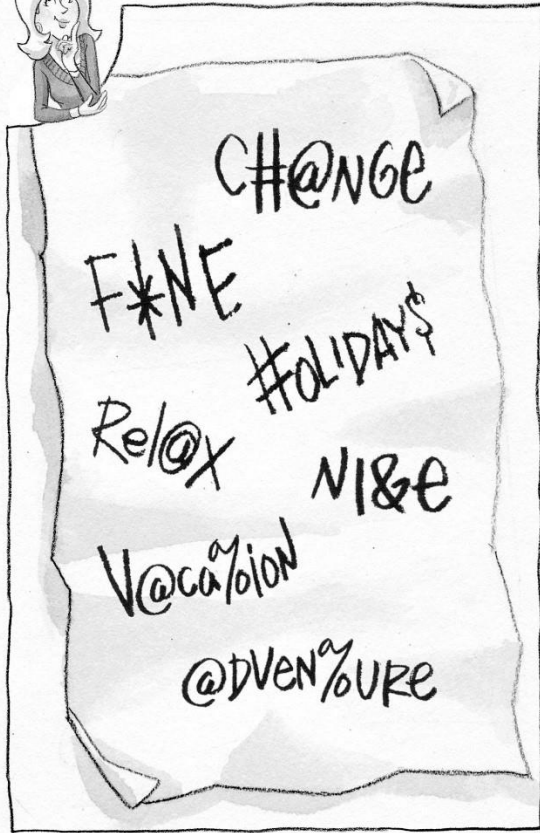 CH@NGe
F*NE
#OLIDAY$
Rel@x
NI&e
V@ca%ioN
@DVeN%URe